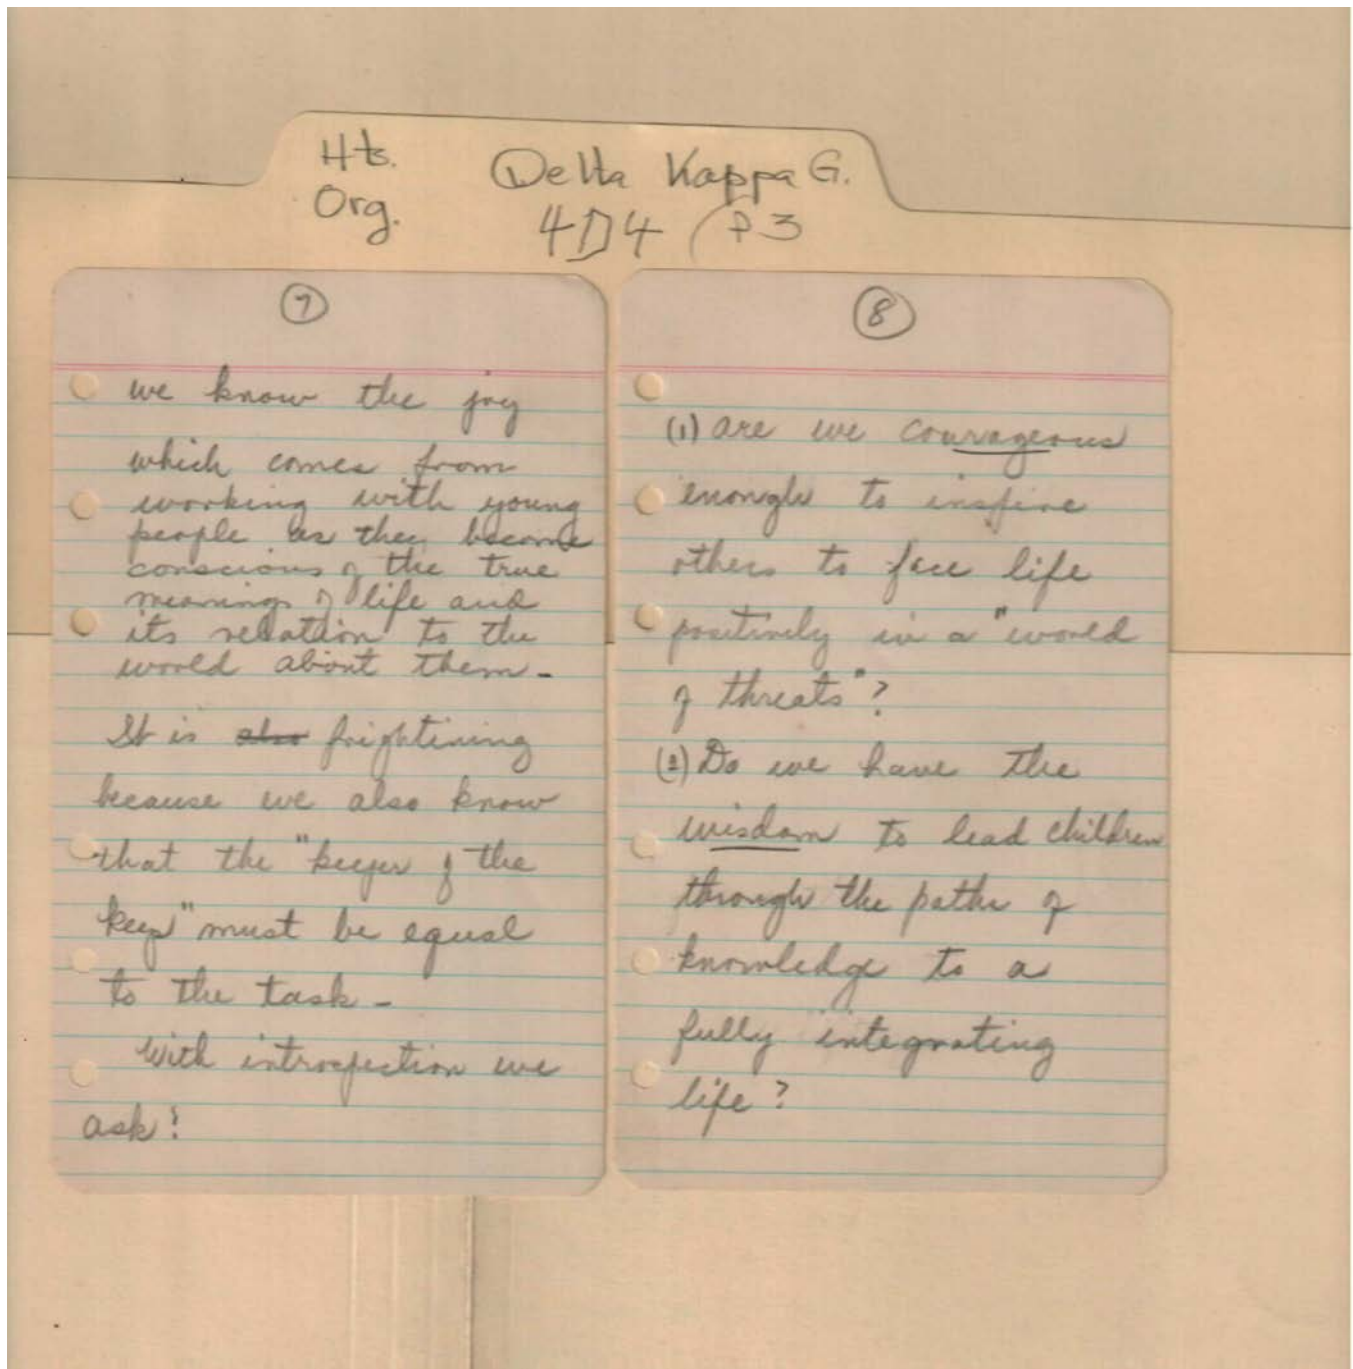 Hts. Delta Kappa G.
Org. 4D4 (P3
7
we know the joy
which comes from
working with young
people as they become
conscious of the true
meanings of life and
its relation to the
world about them -
It is also frightining
because we also know
that the "keeper of the
keep" must be equal
to the task -
With introspection we
ask:
8
(1) are we courageous
enough to inspire
others to face life
positively in a "world
of threats"?
(2) Do we have the
wisdom to lead children
through the paths of
knowledge to a
fully integrating
life?